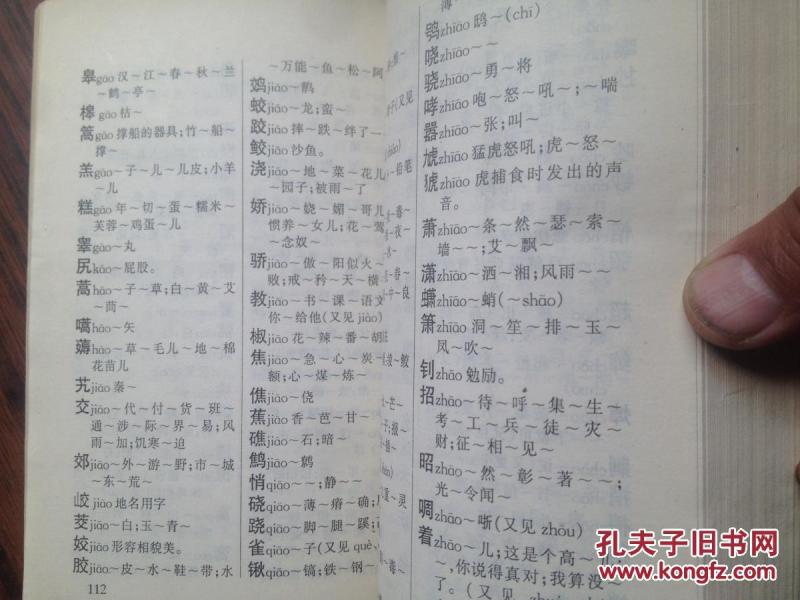 皋gāo 汉～江～春～秋～兰
～鹤～亭～
槔gāo 桔～
篙gāo 撑船的器具;竹～船～
撑～
羔gāo～子～儿～儿皮;小羊
～儿
糕gāo 年～切～蛋～糯米～
芙蓉～鸡蛋～儿
睾gāo～丸
尻kāo～屁股。
蒿hāo～子～草;白～黄～艾
～茼～
嚆hāo～矢
薅hāo～草～毛儿～地～棉
花苗儿
艽jiāo 秦～
交jiāo～代～付～货～班～
通～涉～际～界～易;风
雨～加;饥寒～迫
郊jiāo～外～游～野;市～城
～东～荒～
峧jiāo 地名用字
茭jiāo～白;玉～青～
姣jiāo 形容相貌美。
胶jiāo～皮～水～鞋～带;水
112
～万能～鱼～松～阿
鹪jiāo～鹩
蛟jiāo～龙;蛮～
跤jiāo 摔～跌～绊了一
鲛jiāo 沙鱼。
浇jiāo～地～菜～花儿
～园子;被雨～了
娇jiāo～娆～媚～哥儿
惯养～女儿;花～莺
～念奴～
骄jiāo～傲～阳似火～
败;戒～矜～天～横
教jiāo～书～课～语文
你～给他(又见jiào)
椒jiāo 花～辣～番～胡
焦jiāo～急～心～炭～
额;心～煤～炼～
僬jiāo～侥
蕉jiāo 香～芭～甘～
礁jiāo～石;暗～
鹪jiāo～鹩
悄qiāo～～;静～～
硗qiāo～薄～瘠～确;
跷qiāo～脚～腿～蹊;
雀qiāo～子(又见què、
锹qiāo～镐;铁～钢～
鸮zhīāo 鸱～(chī)
哓zhīāo～～
骁zhīāo～勇～将
哮zhīāo 咆～怒～吼～;～喘
嚣zhīāo～张;叫～
虓zhīāo 猛虎怒吼;虎～怒～
猇zhīāo 虎捕食时发出的声
音。
萧zhīāo～条～然～瑟～索～
墙～～;艾～飘～
潇zhīāo～洒～湘;风雨～～
蟏zhīāo～蛸(～shāo)
箫zhīāo 洞～笙～排～玉～
凤～吹～
钊zhāo 勉励。
招zhāo～待～呼～集～生～
考～工～兵～徒～灾～
财;征～相～见～
昭zhāo～然～彰～著～～;
光～令闻～
啁zhāo～哳(又见zhōu)
着zhāo～儿;这是个高～儿
～～,你说得真对;我算没
～了。(又见
孔夫子旧书网